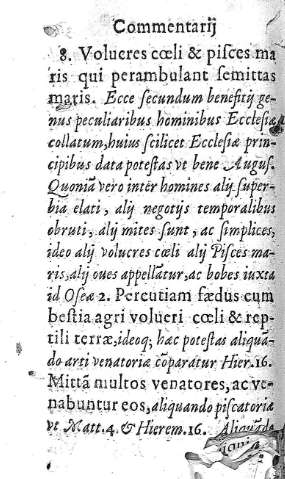 Commentarij
8. Volucres cœli & pisces ma
ris qui perambulant semittas
maris. Ecce secundum benefitij ge-
nus peculiaribus hominibus Ecclesiæ
collatum, huius scilicet Ecclesiæ prin-
cipibus data potestas vt bene August.
Quoniã vero inter homines alij super-
bia elati, alij negotijs temporalibus
obruti, alij mites sunt, ac simplices,
ideo alij volucres cœli alij Pisces ma-
ris, alij oues appellãtur, ac bobes iuxta
id Oseæ 2. Percutiam fædus cum
bestia agri volucri cœli & rep-
tili terræ, ideoq; hæc potestas aliquã-
do arti venatoriæ cõparatur Hier. 16.
Mittã multos venatores, ac ve-
nabuntur eos, aliquando piscatoriæ
vt Matt. 4. & Hierem. 16. Aliquãdo